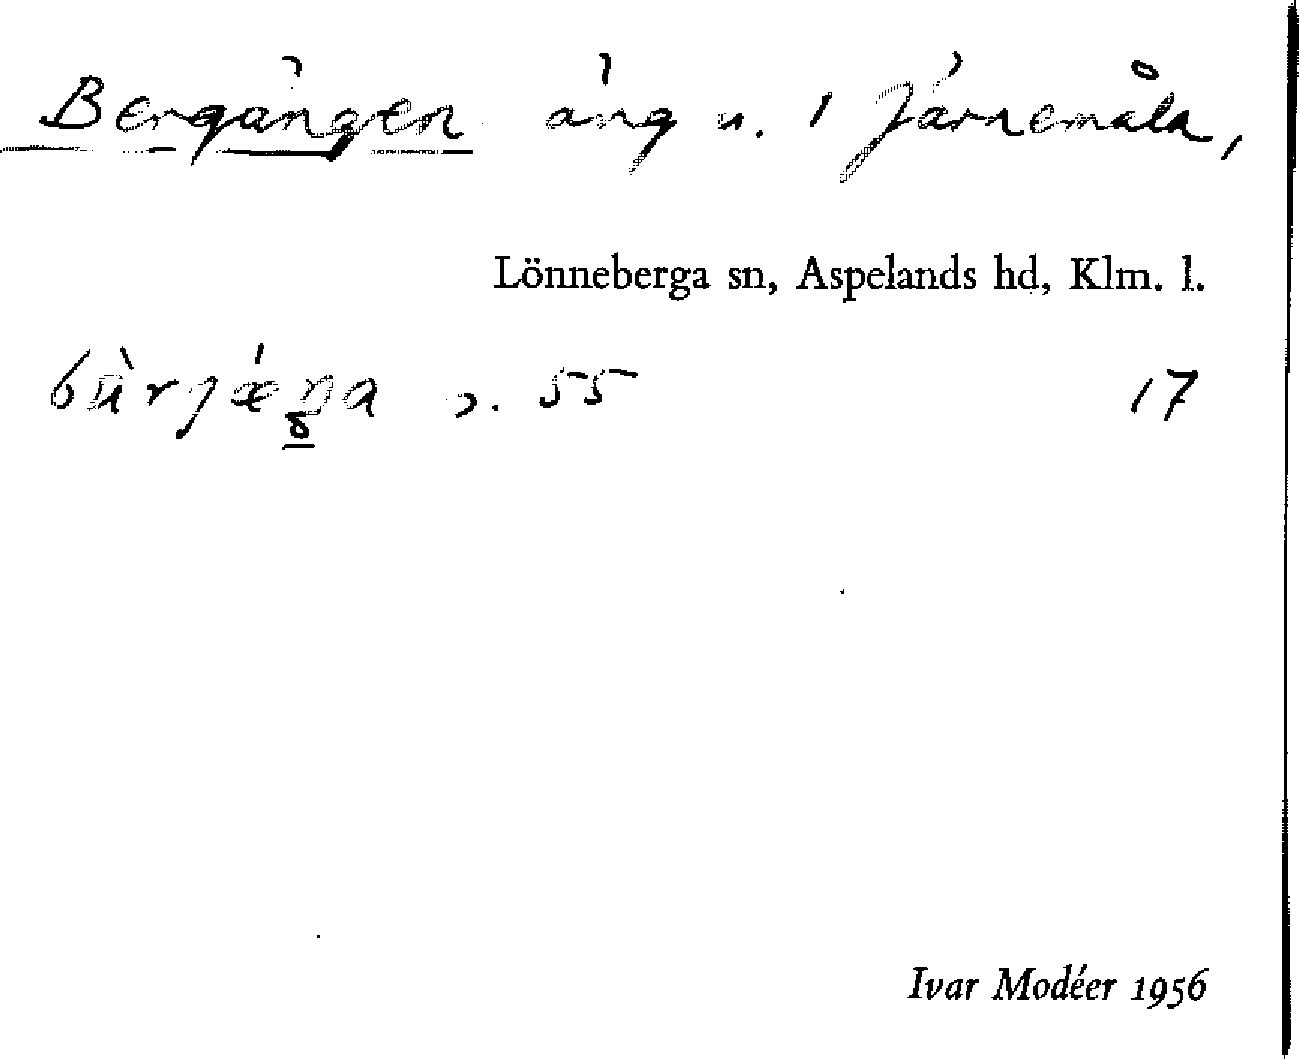 Bergängen äng u. 1 Järnemåla,
Lönneberga sn, Aspelands hd, Klm. l.
55 17
Ivar Modéer 1956